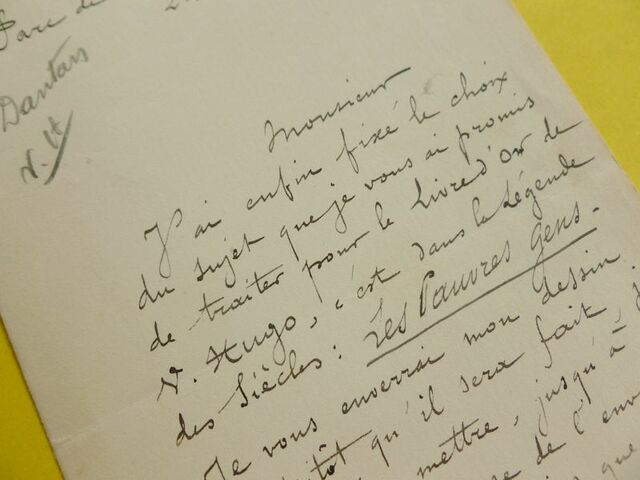 Parc de
Dantan
V. H
Monsieur
J'ai enfin fixé le choix
du sujet que je vous ai promis
de traiter pour le Livre d'Or de
V. Hugo, c'est dans la Légende
des Siècles: Les Pauvres Gens.
Je vous enverrai mon dessin
qu'il sera fait,
mettre, jusqu'à
de l'env
que